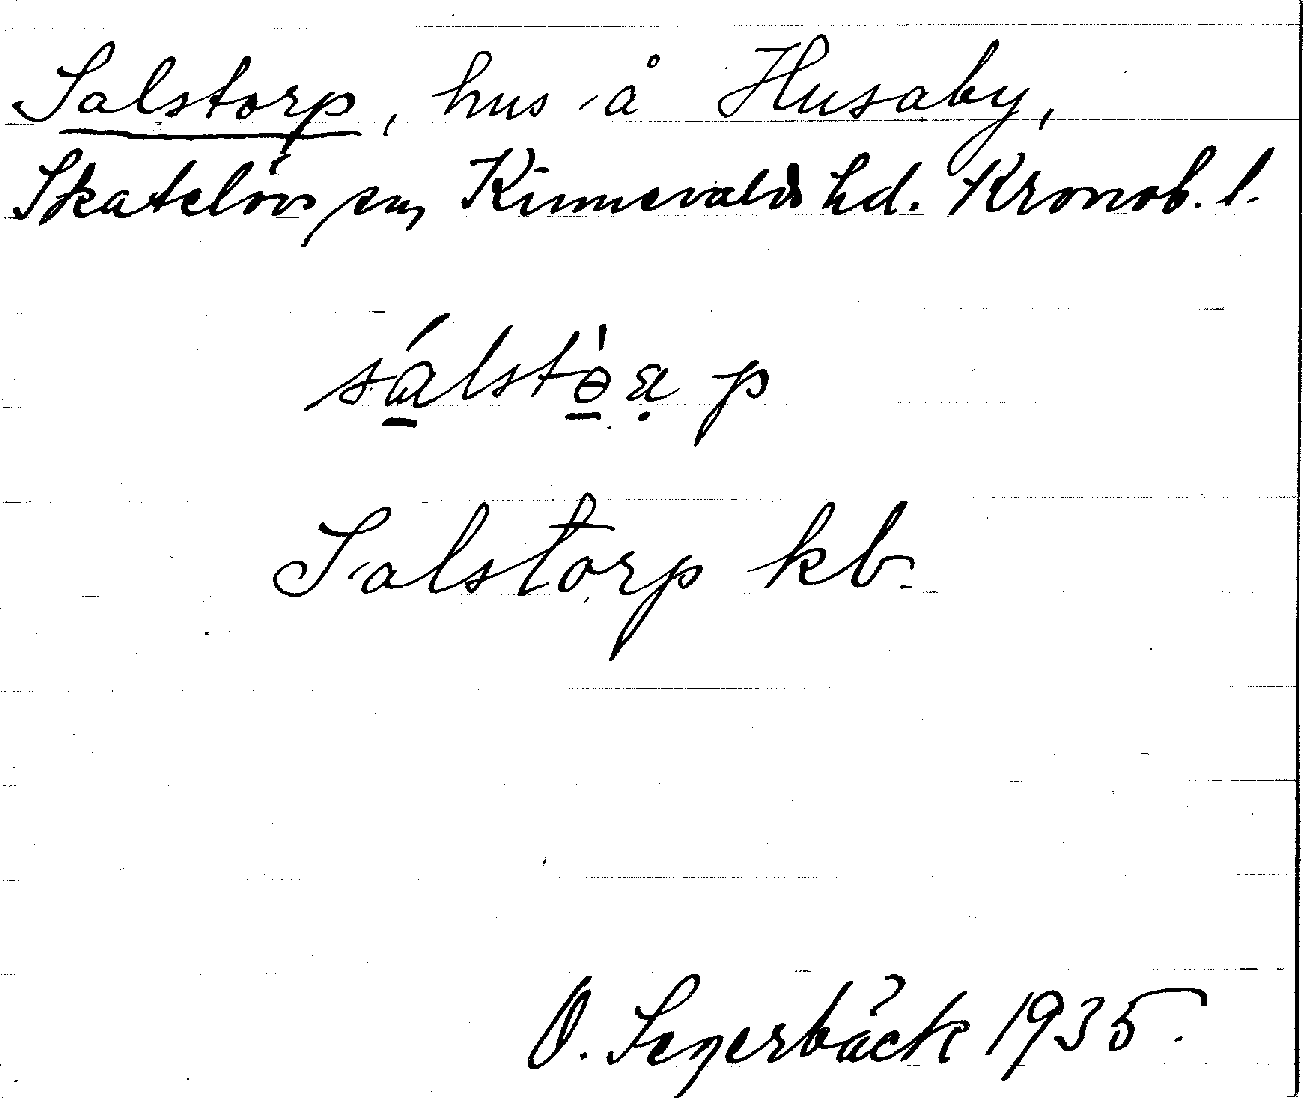 Salstorp, hus å Husaby,
Skatelövs sn, Kinnevalds hd. Kronob. l.
Salstorp kb.
O. Segerbäck 1935.